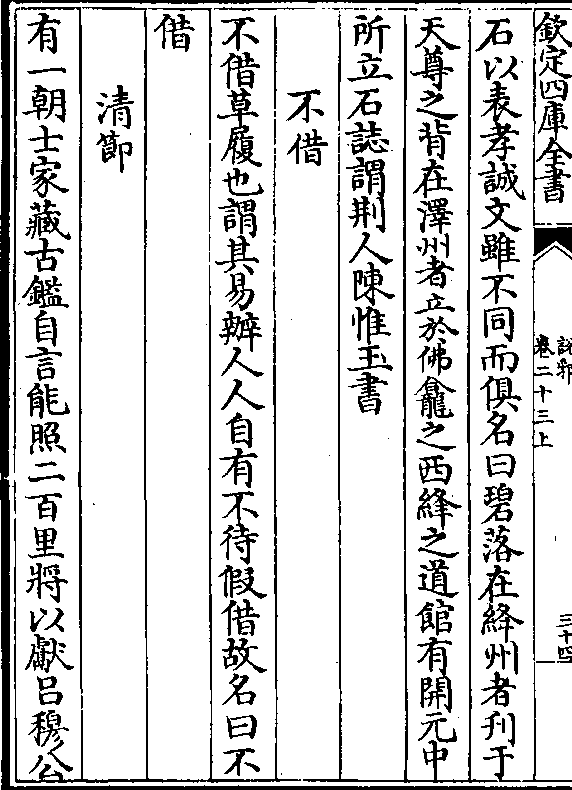 欽定四庫全書
說郛
卷二十三上
三十四
石以表孝誠文雖不同而俱名曰碧落在絳州者刋于
天尊之背在澤州者立於佛龕之西絳之道館有開元中
所立石誌謂荆人陳惟玉書
不借
不借草履也謂其易辦人人自有不待假借故名曰不
借
清節
有一朝士家藏古鑑自言能照二百里將以獻吕穆公